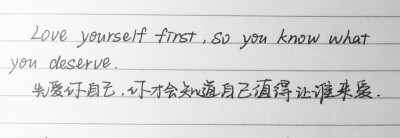 Love yourself first, so you know what
you deserve.
先爱你自己，你才会知道自己值得让谁来爱.